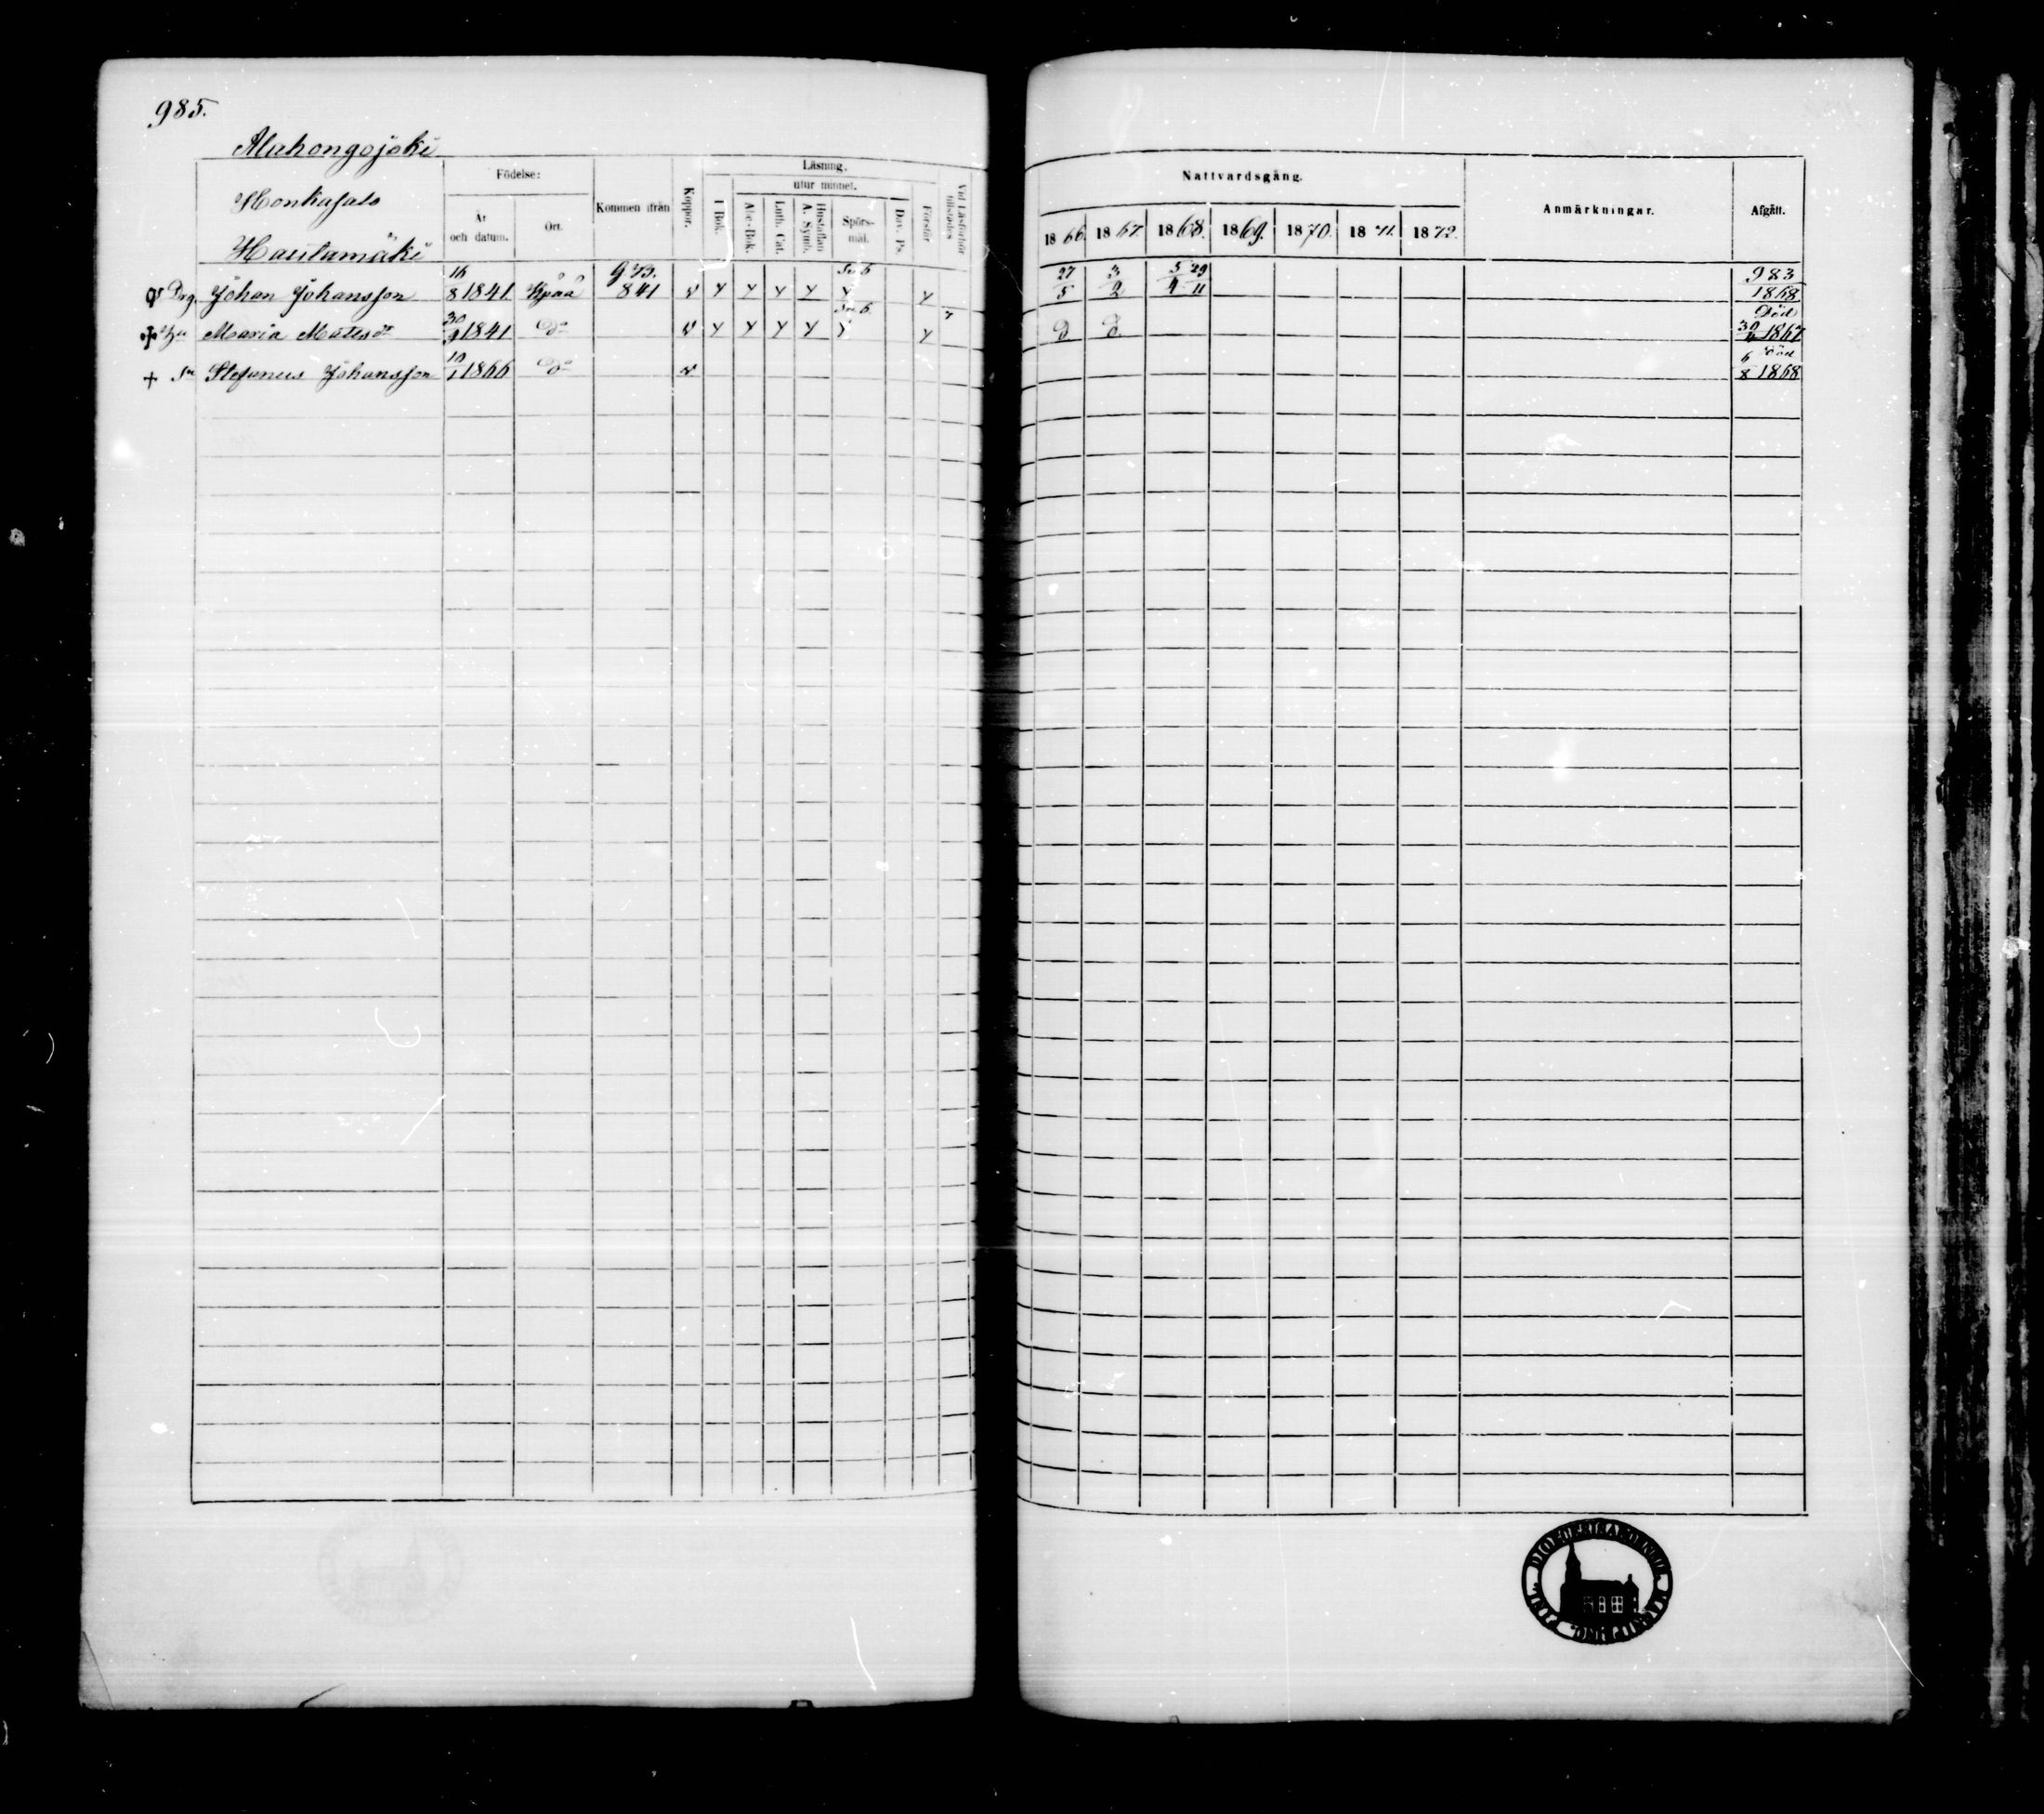 985.
Alahongojoki
Honkasalo
Hautamäki
Födelse:
År och datum.
Ort.
Kommen ifrån
Koppor.
Läsning.
utur minnet.
I Bok.
Abc-Bok.
Luth. Cat.
Hustaflan A. Symb.
Spörsmål.
Dav. Ps.
Förstår
Vid Läsförhör tillstädes
Nattvardsgång.
1866. 1867. 1868. 1869. 1870. 1871. 1872.
Anmärkningar.
Afgått.
Drg. Johan Johansson 16/8 1841 Kpää 973. 841 v y y y y y y 27/5 3/2 5/4 29/11 983 1868
Hu Maria Matlsdr 30/9 1841 do v y y y y y y D D Död 1867
+ Sn Stefanus Johansson 10/1 1866 do v 6/8 Död 1868